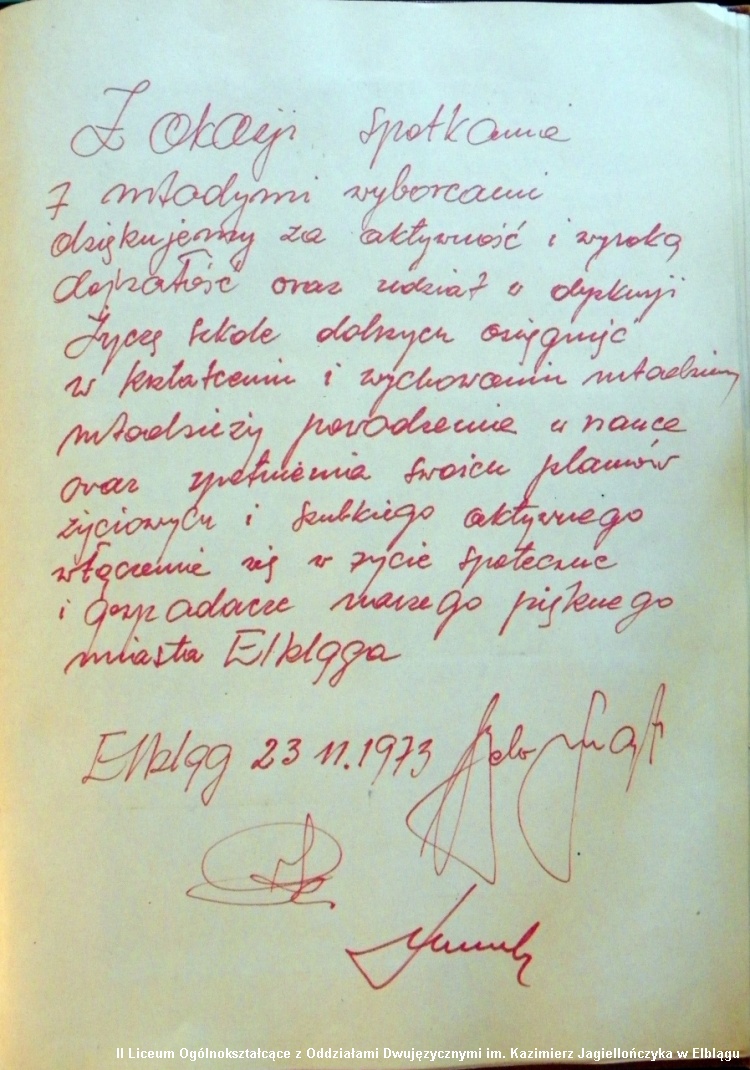 Z okazji spotkania
z młodymi wyborcami
dziękujemy za aktywność i wysoką
dojrzałość oraz udział w dyskusji
Życzę szkole dalszych osiągnięć
w kształceniu i wychowaniu młodzieży
młodzieży powodzenia w nauce
oraz spełnienia swoich planów
życiowych i szybkiego aktywnego
włączenia się w życie społeczne
i gospodarcze naszego pięknego
miasta Elbląga
Elbląg 23 11.1973
II Liceum Ogólnokształcące z Oddziałami Dwujęzycznymi im. Kazimierz Jagiellończyka w Elblągu